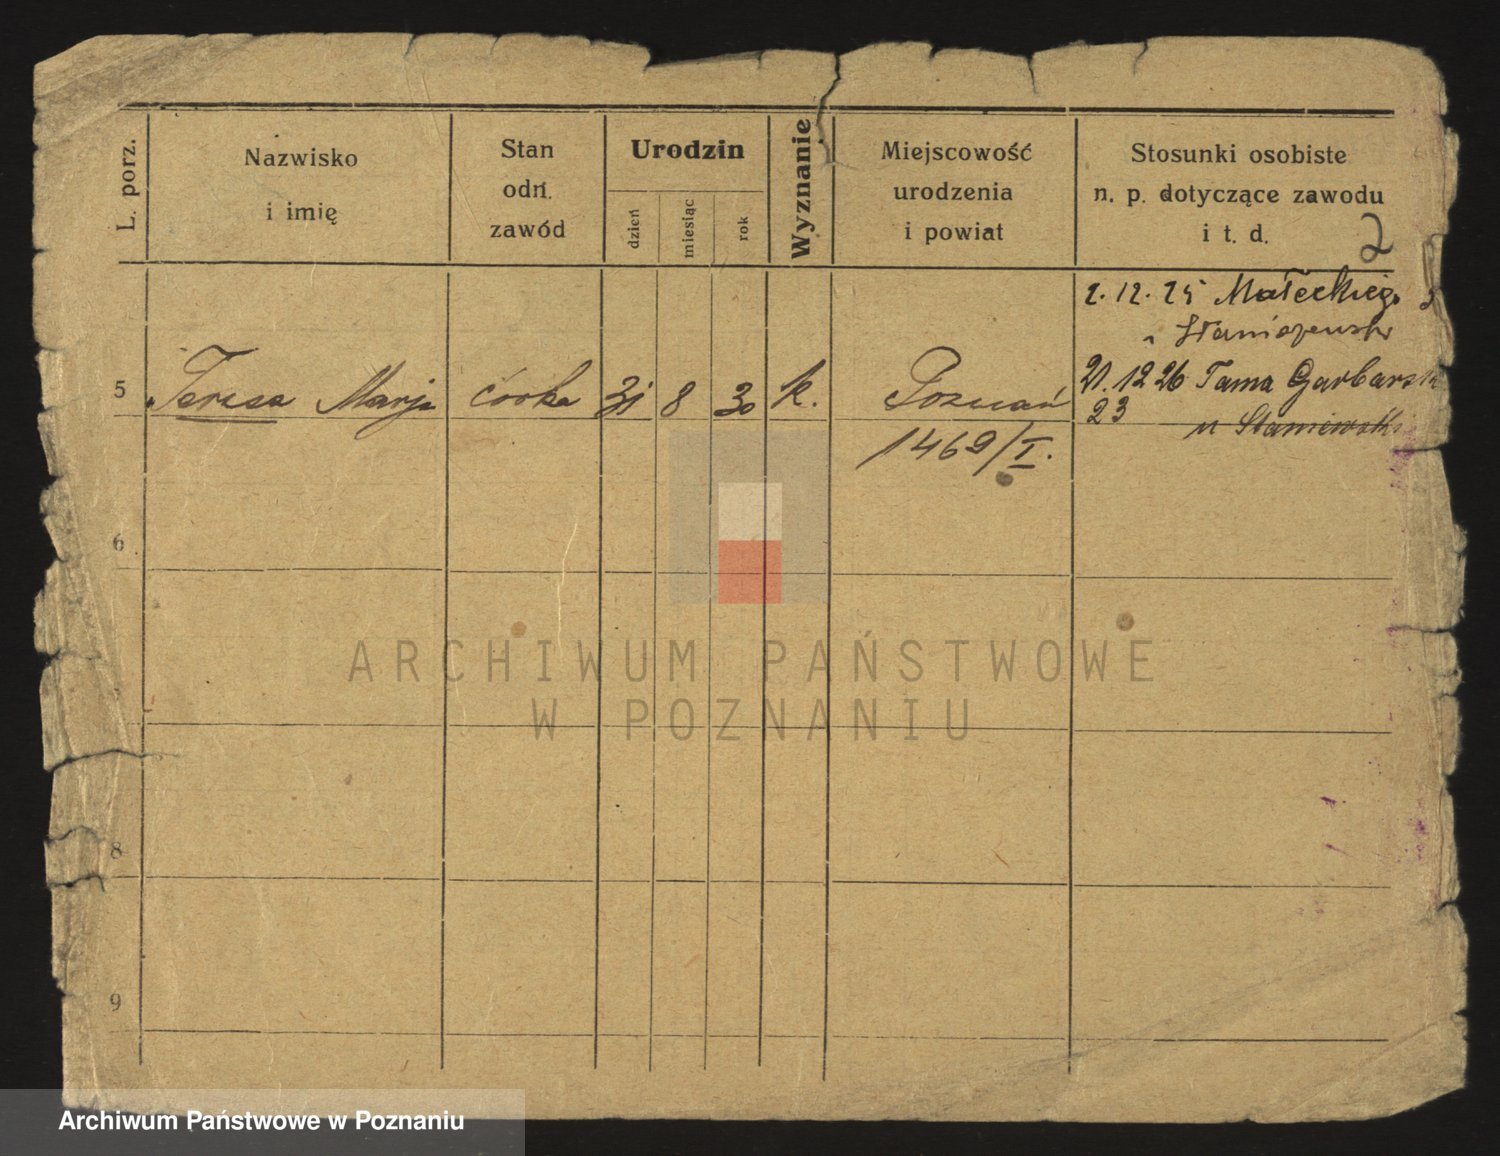 L. porz.
Nazwisko
i imię
Stan
odn.
zawód
Urodzin
dzień
miesiąc
rok
Wyznanie
Miejscowość
urodzenia
i powiat
Stosunki osobiste
n. p. dotyczące zawodu
i t. d.
2
2. 12. 25 Małeckiego
Staniszewski
5 Teresa Marja córka 31 8 30 k. Poznań
21. 12 26 Tama Garbarska
23
u Staniewski
1469/I.
6
8
9
ARCHIWUM PAŃSTWOWE
W POZNANIU
Archiwum Państwowe w Poznaniu